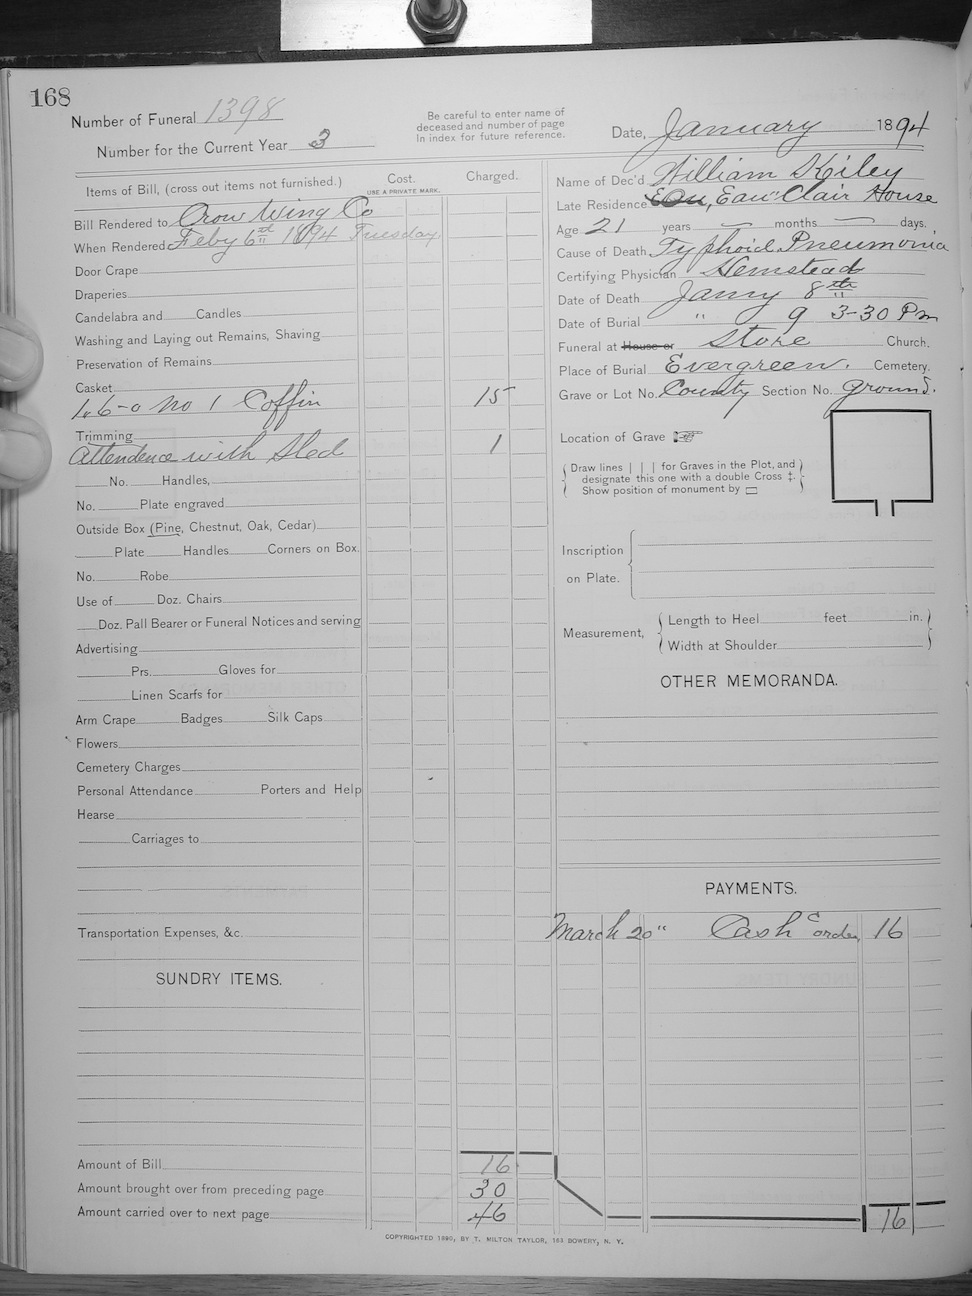 168
Number of Funeral 1398
Be careful to enter name of
deceased and number of page
In index for future reference.
Date, January 1894
Number for the Current Year 3
Items of Bill, (cross out items not furnished.)
Cost.
USE A PRIVATE MARK.
Charged.
Bill Rendered to Crow Wing Co
When Rendered Feby 6th 1894 Tuesday
Door Crape
Draperies
Candelabra and Candles
Washing and Laying out Remains, Shaving
Preservation of Remains
Casket
1, 6-0 No 1 Coffin 15
Trimming
Attendence with Sled 1
No. Handles,
No. Plate engraved
Outside Box (Pine, Chestnut, Oak, Cedar)
Plate Handles Corners on Box.
No. Robe
Use of Doz. Chairs
Doz. Pall Bearer or Funeral Notices and serving
Advertising
Prs. Gloves for
Linen Scarfs for
Arm Crape Badges Silk Caps
Flowers
Cemetery Charges
Personal Attendance Porters and Help
Hearse
Carriages to
Transportation Expenses, &c.
SUNDRY ITEMS.
Amount of Bill 16
Amount brought over from preceding page 30
Amount carried over to next page 46
Name of Dec'd William Kiley
Late Residence Eau Clair House
Age 21 years — months — days.
Cause of Death Typhoid Pneumonia
Certifying Physician Hemstead
Date of Death Jany 8th
Date of Burial " 9 3-30 Pm
Funeral at House or Store Church.
Place of Burial Evergreen. Cemetery.
Grave or Lot No. County Section No. ground.
Location of Grave
Draw lines | | | for Graves in the Plot, and
designate this one with a double Cross ‡.
Show position of monument by ▭
Inscription
on Plate.
Measurement,
Length to Heel feet in.
Width at Shoulder
OTHER MEMORANDA.
PAYMENTS.
March 20" Cash order 16
16
COPYRIGHTED 1890, BY T. MILTON TAYLOR, 163 BOWERY, N. Y.